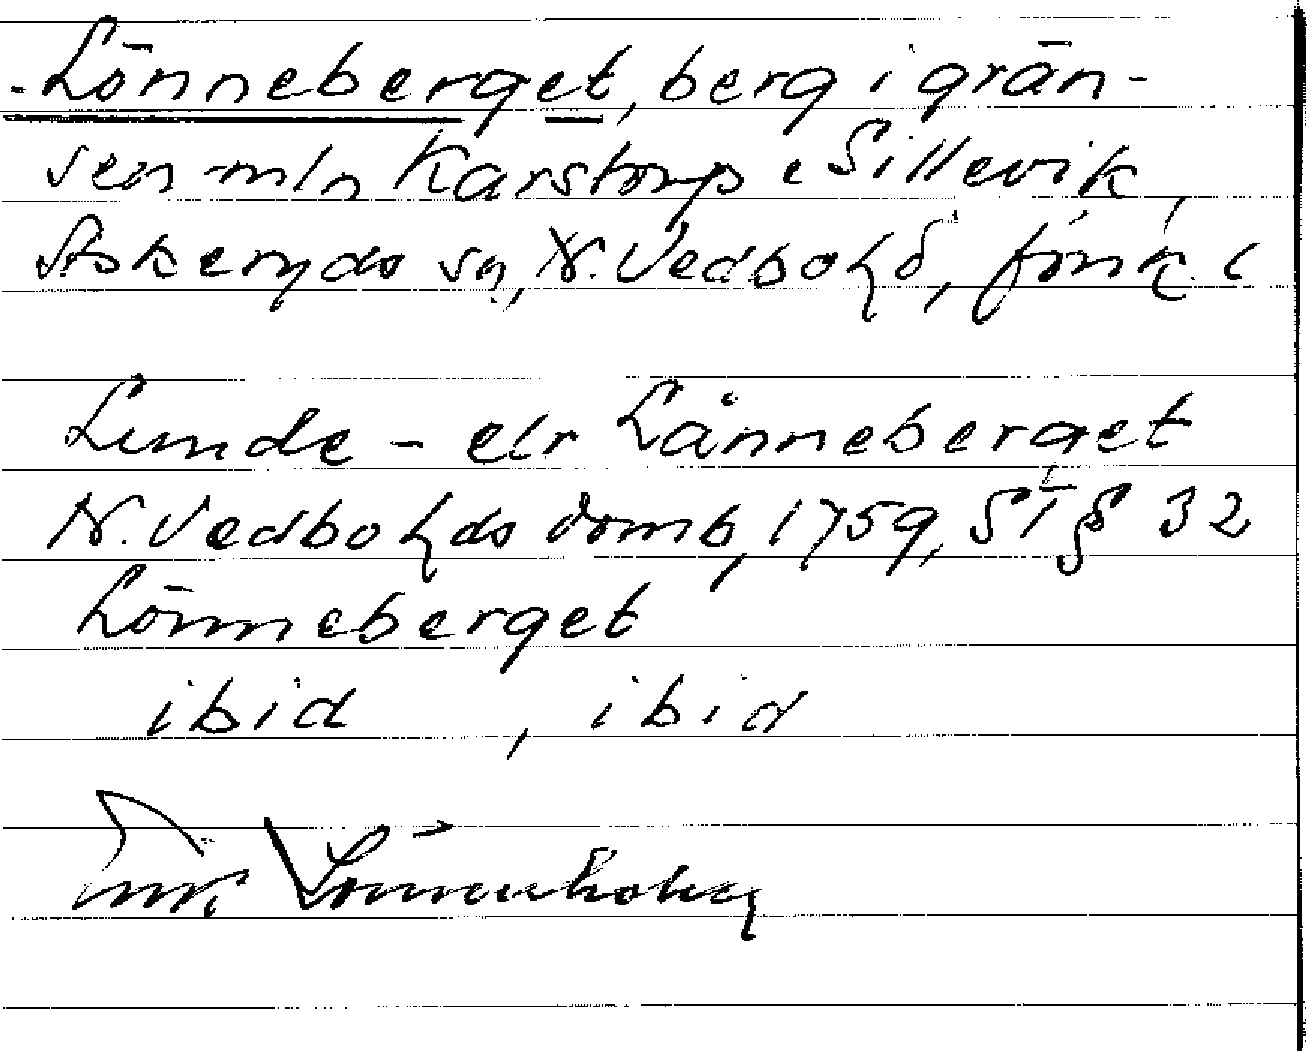 Lönneberget, berg i grän-
sen mln Karstorp o Sillevik,
Askeryds sn, N. Vedbo hd,
Lunde- elr Lånneberget
N. Vedbo hds domb, 1759, ST § 32
Lönneberget
ibid , ibid